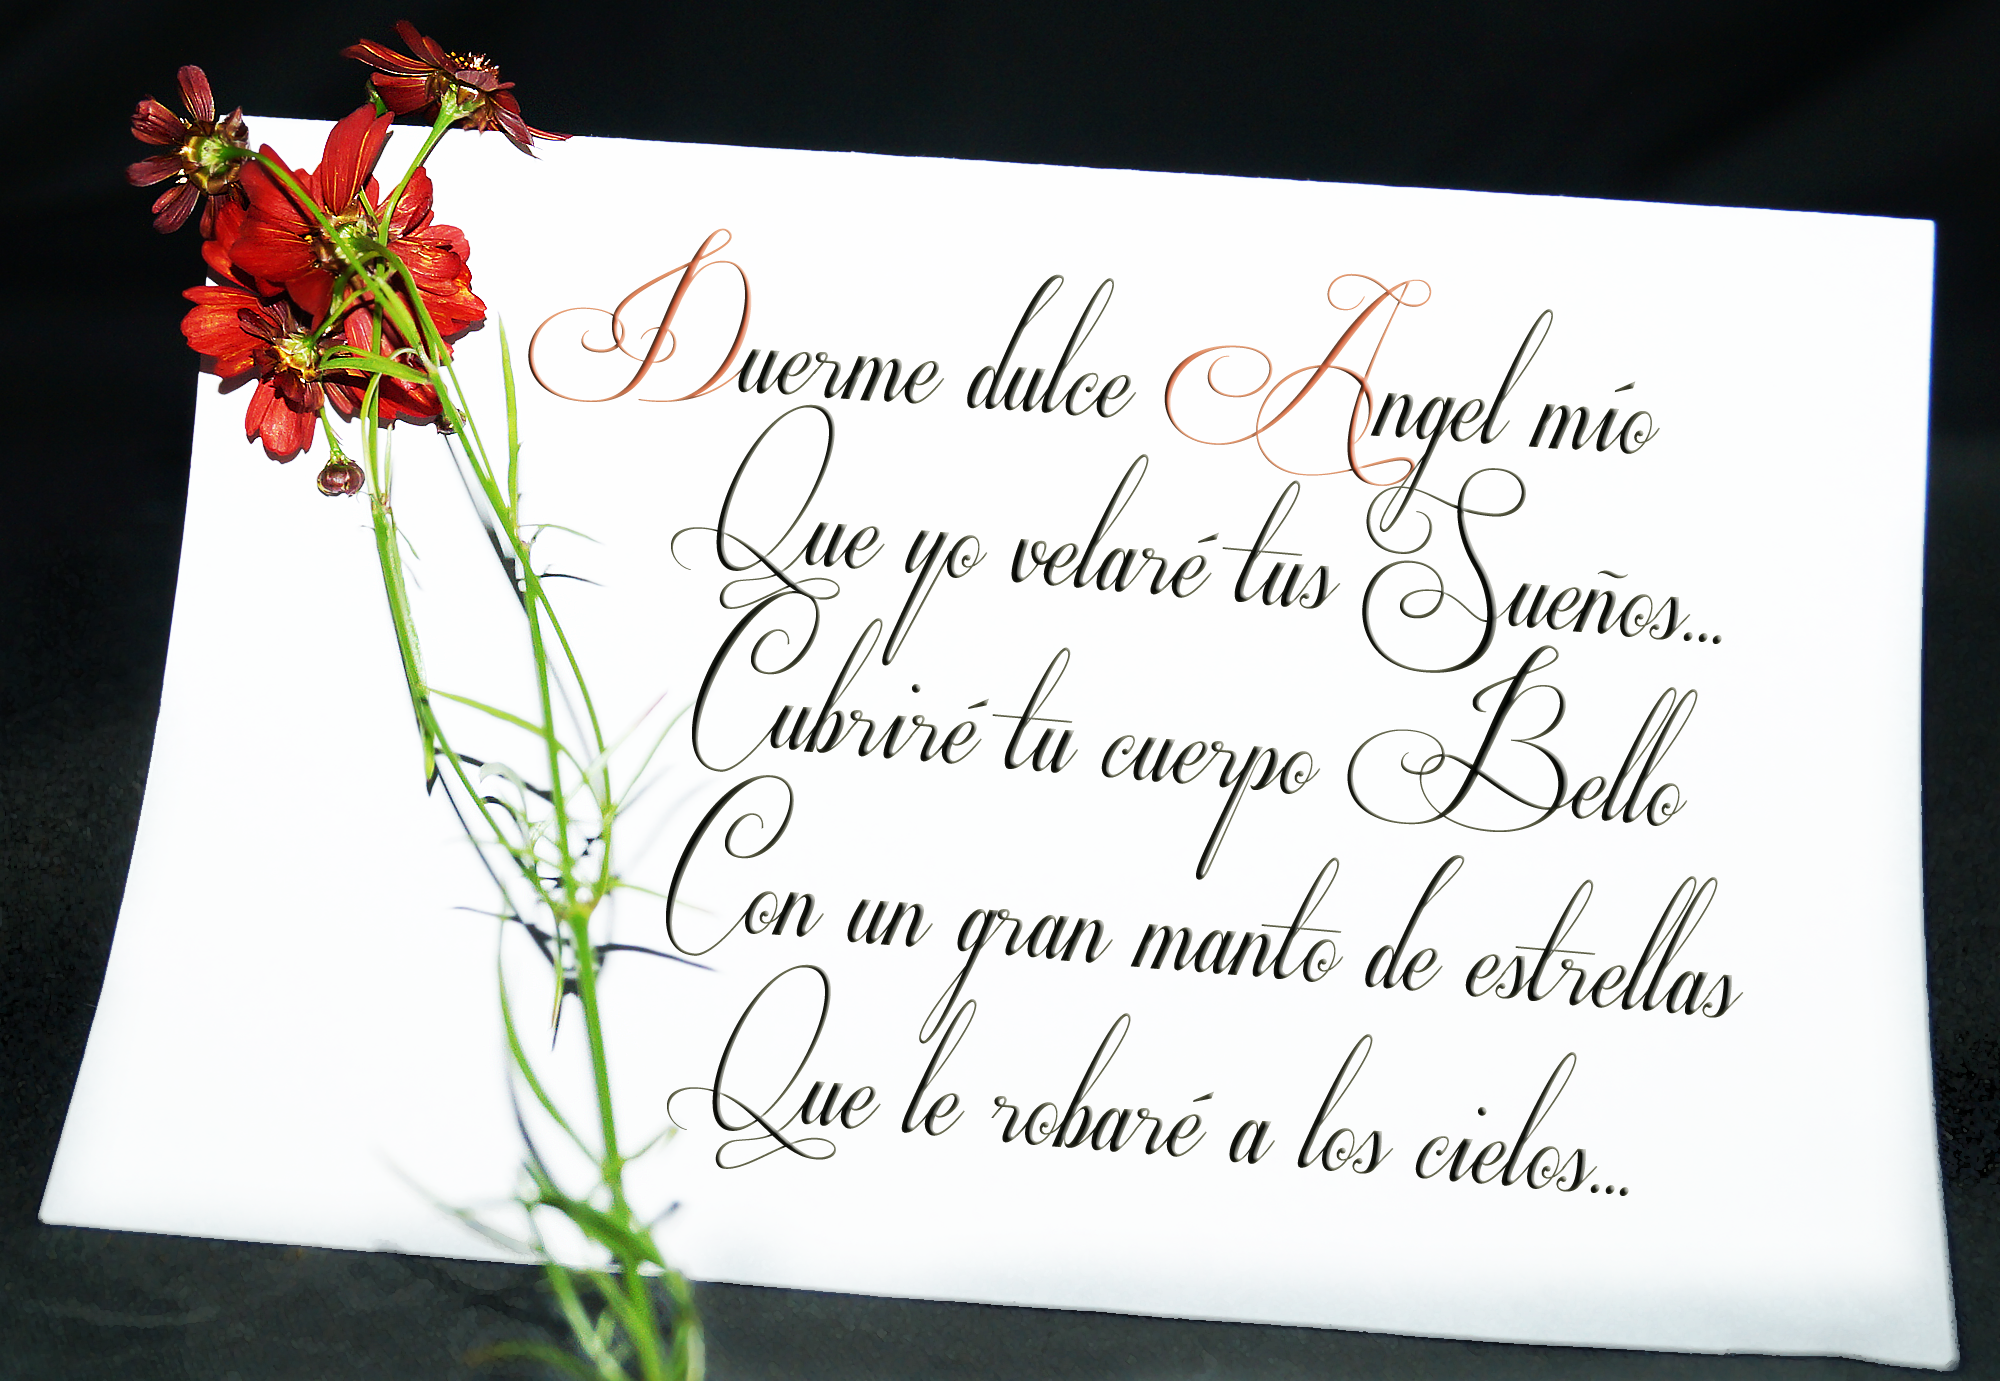 Duerme dulce Angel mío
Que yo velaré tus Sueños...
Cubriré tu cuerpo Bello
Con un gran manto de estrellas
Que le robaré a los cielos...